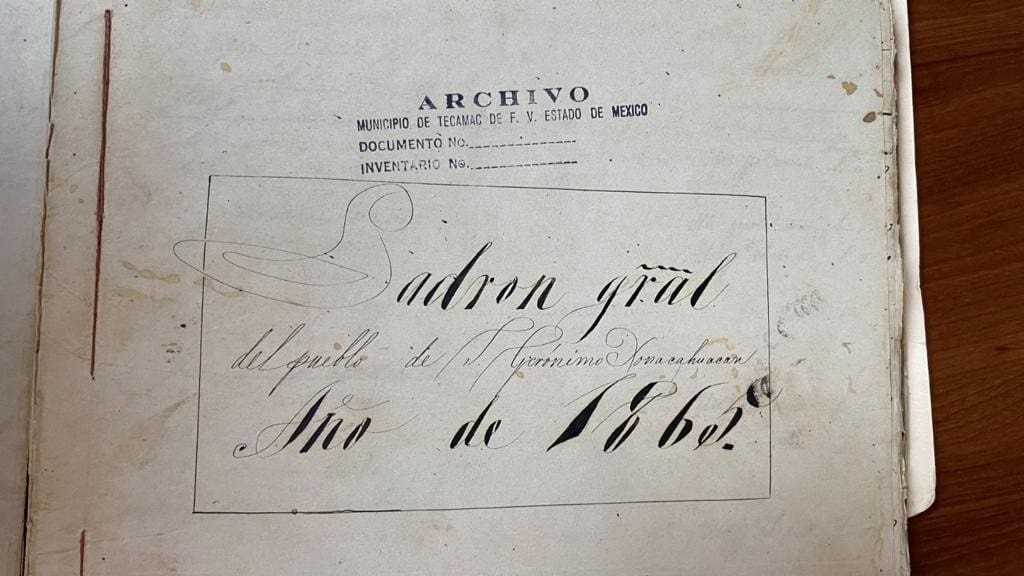 ARCHIVO
MUNICIPIO DE TECAMAC DE F. V. ESTADO DE MEXICO
DOCUMENTO No.______________
INVENTARIO No.______________
Padron gral
del pueblo de S. Geronimo Xonacahuacan
Año de 1865.